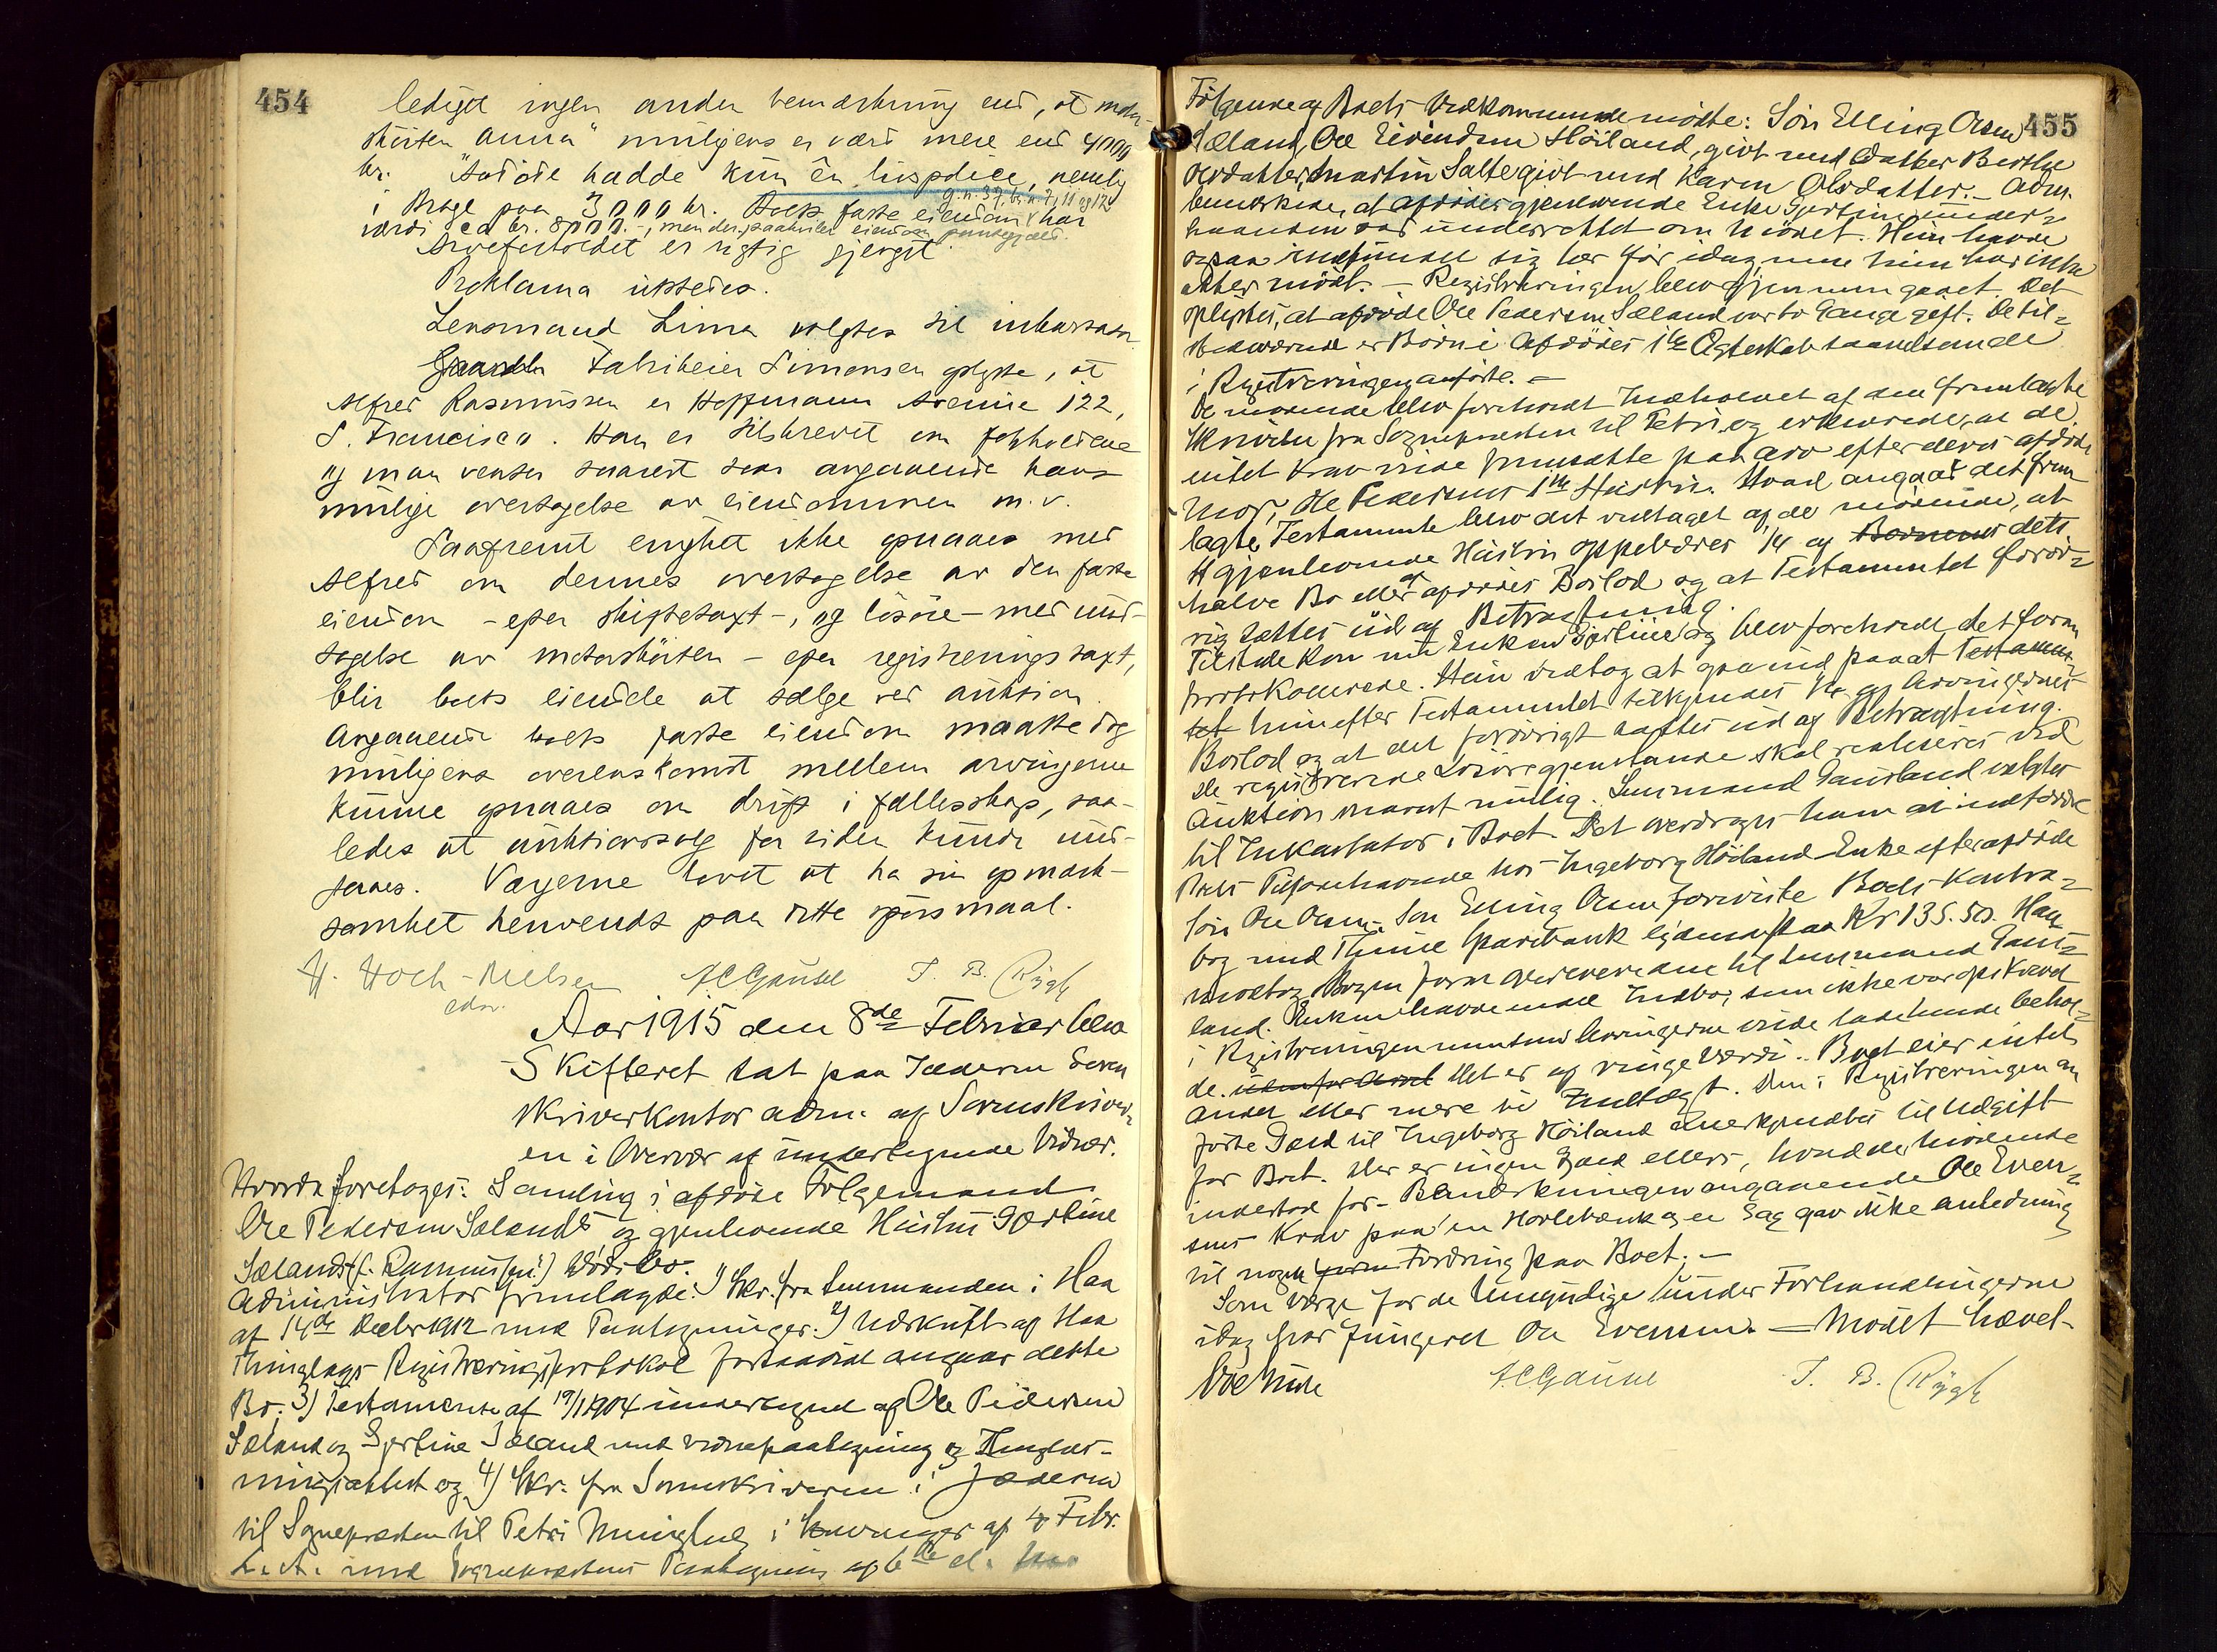 454
lediget ingen anden bemerkning end, at motor-
skøiten "Anna" muligens er værd mere end 4000
kr. Avdøde hadde kun én livspolice, nemlig
i Brage paa 3000 kr. Boets faste eiendom g.n. 37, br.n. 7, 11 og 12 har
værdi ca kr. 8000.-, men der paahviler eiendom pantegjæld.
Arveforholdet er rigtig gjengit.
Proklama utstedes.
Lensmand Lima valgtes til inkassator.
Fabrikeier Simonsen oplyste, at
Alfred Rasmussen er Hoffmann Avenue 122,
S. Francisco. Han er tilskrevet om forholdene
og man venter snarest svar angaaende hans
mulige overtagelse av eiendommen m.v.
Saafremt enighet ikke opnaaes med
Alfred om dennes overtagelse av den faste
eiendom - efter skiftetaxt -, og løsøre - med und-
tagelse av motorskøiten - efter registreringstaxt,
blir boets eiendele at sælge ved auktion.
Angaaende boets faste eiendom maatte dog
muligens overenskomst mellem arvingerne
kunne opnaaes om drift i fællesskap, saa-
ledes at auktionssalg for tiden kunde und-
gaaes. Vergerne lovet at ha sin opmerk-
somhet henvendt paa dette spørsmaal.
H. Hoch-Nielsen A C Gausel T. B. Rygh
edsv.
Aar 1915 den 8de Februar blev
Skifteret sat paa Jæderen Soren
skriverkontor adm. af Sorenskriver-
en i Overvær af undertegnede Vidner.
Hvorda foretoges: Samling i afdøde Følgemand
Ole Pedersen Sælands og gjenlevende Hustru Gjertine
Sælands (f. Rasmus) Dødsbo.
Administrator fremlagde: 1) Skr. fra Lensmanden i Haa
af 14de Decbr 1912 med Paategninger. 2) Udskrift af Haa
Thinglags Registreringsprotokol forsaavidt angaar dette
Bo. 3) Testamente af 19/1 1904 undertegnet af Ole Pedersen
Sæland og Gjertine Sæland med vidnepaategning og Tinglæs-
ningsattest og 4) Skr. fra Sorenskriveren i Jæderen
til Sognepræsten til Petri Menighed i Stavanger af 4 Febr.
d. A. med Sognepræstens Paategning af 6te d.
455
Følgende af Boets Vedkommende mødte: Søn Elling Olsen
Sæland, Ole Eivindsen Høiland, givt med Datter Berthe
Olsdatter, Martin Salte givt med Karen Olsdatter. - Adm.
bemærkede, at afdødes gjenlevende Enke Gjertine under-
haanden var underrettet om Mødet. Hun havde
ogsaa indfundet sig her før idag, men hun har ikke
atter mødt. - Registreringen blev gjennemgaaet. Det
oplystes, at afdøde Ole Pedersen Sæland var to Gange gift. De til-
stedeværende er Børn i Afdødes 1ste Ægteskab saavelsom de
i Registreringen anførte. -
De mødende blev foreholdt Indholdet af den fremlagte
Skrivelse fra Sognepræsten til Petri og erklærede, at de
intet Krav vilde fremsætte paa Arv efter deres afdøde
Mor, Ole Pedersens 1ste Hustru. Hvad angaar det frem
lagte Testamente blev det vedtaget af de mødende, at
gjenlevende Hustru oppebærer 1/4 af dets
halve Bo eller af afdødes Boslod og at Testamentet forøv-
rig sættes ud af Betragtning.
Tilstede kom nu Enken Gjertine og blev foreholdt det foran
protokollerede. Hun vedtog at gaa ind paa at Testamen-
tet hun efter Testamentet tilkjendes 1/4 af Arvingernes
Boslod og at det forøvrigt sættes ud af Betragtning.
De registrerede Løsøregjenstande skal realiseres ved
Auktion snarest mulig. Lensmand Gausland valgtes
til Inkassator i Boet. Det overdroges ham at inddrive
Boets Tilgodehavende hos Ingeborg Høiland Enke efter afdøde
Søn Ole Olsen. Søn Elling Olsen foreviste Boets Kontra-
bog med Thime Sparebank lydende paa Kr 135.50. Han
modtog Bogen for at overlevere den til Lensmand Gaus-
land. Enken havde endel Indbo, som ikke var opskrevet
i Registreringen men som Arvingerne vilde lade hende behol-
de. Det er af ringe Værdi. Boet eier intet
andet eller mere til Indtægt. Den i Registreringen an
førte Gjæld til Ingeborg Høiland anerkjendtes til Udgift
for Boet. Der er ingen Gjæld ellers, hvad de Mødende
indestod for. Bemærkningen angaaende Ole Even-
sens Krav paa en Høvlebænk og en Sag gav ikke anledning
til nogen Fordring paa Boet. -
Som Værge for de Umyndige under Forhandlingerne
idag har fungeret Ole Evensen. - Mødet hævet.
A C Gausel T. B. Rygh